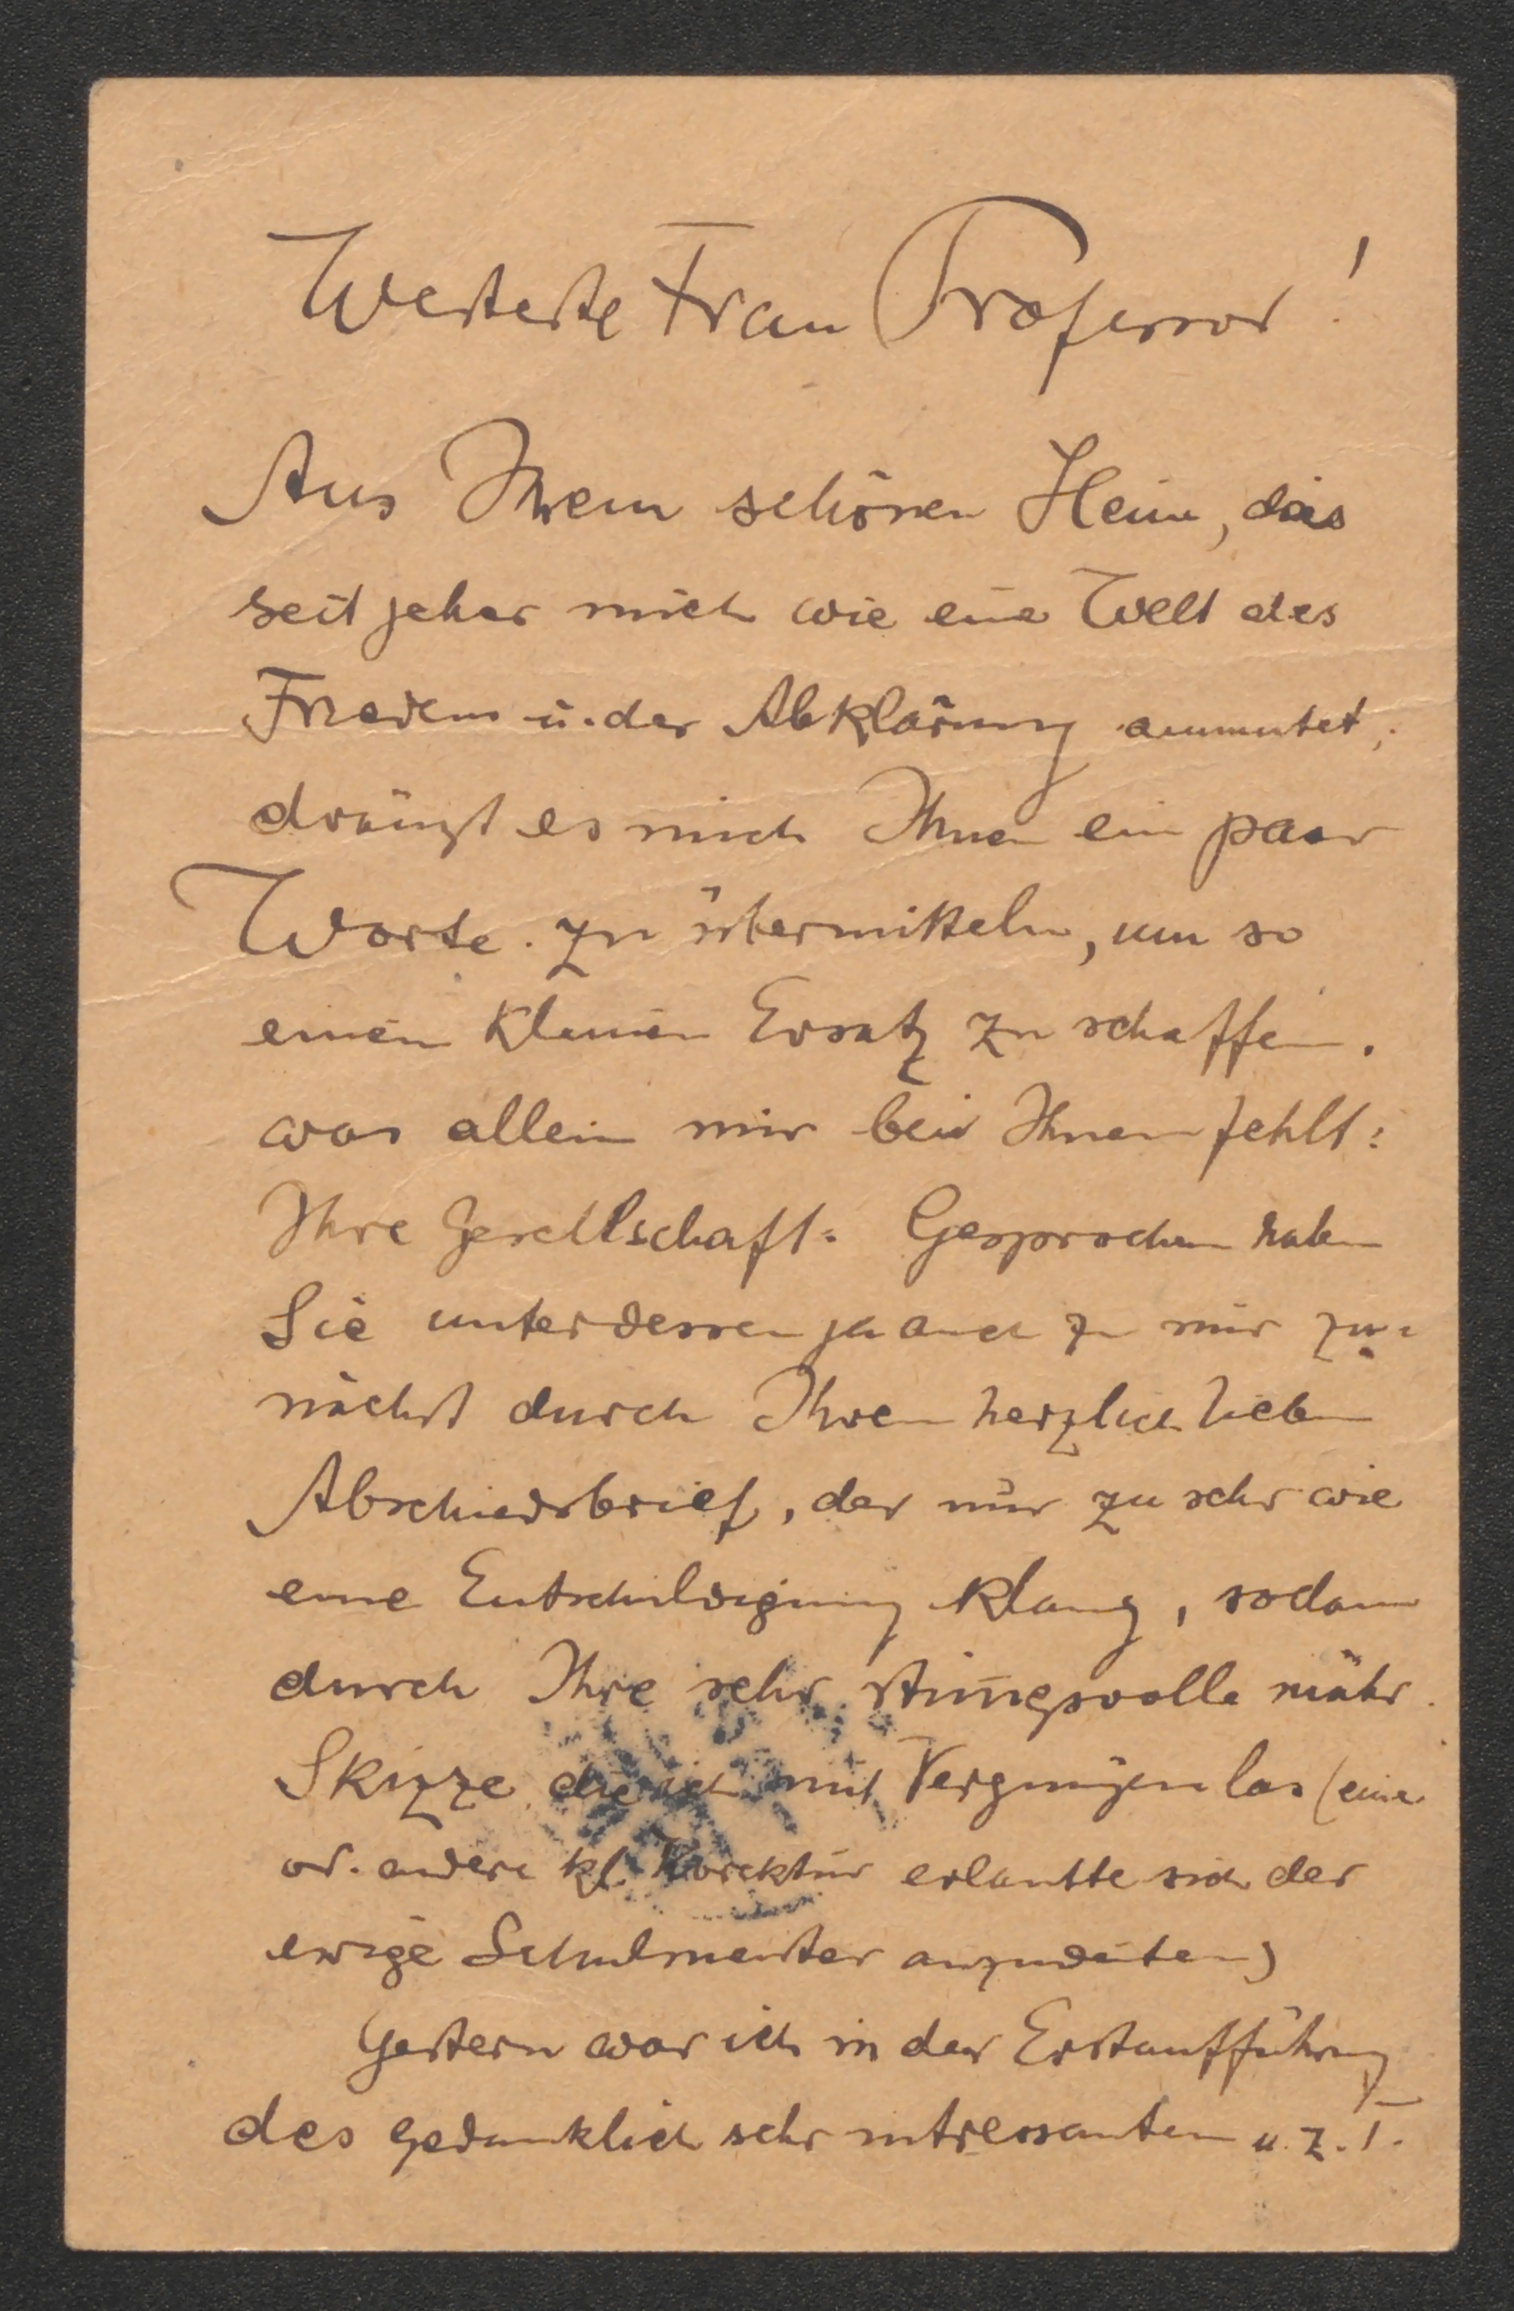 Werteste Frau Professor!
Aus Ihrem schönen Heim, das
seit jeher mich wie eine Welt des
Friedens u. der Abklärung anmutet,
drängt es mich Ihnen ein paar
Worte zu übermitteln, um so
einen kleinen Ersatz zu schaffen,
was allein mir bei Ihnen fehlt:
Ihre Gesellschaft. Gesprochen haben
Sie unterdessen ja auch zu mir zu-
nächst durch Ihren herzlich lieben
Abschiedsbrief, der nur zu sehr wie
eine Entschuldigung klang, sodann
durch Ihre sehr stimgsvolle mähr.
Skizze, die ich mit Vergnügen las (eine
od. andere kl. Korektur erlaubte sich der
ewige Schulmeister anzudeuten)
Gestern war ich in der Erstaufführung
des gedanklich sehr intressanten u. z. T.